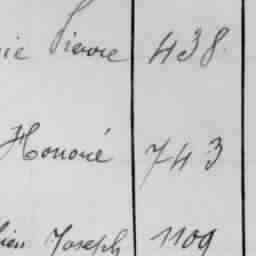 Pierre 438
Honoré 743
Joseph 1109